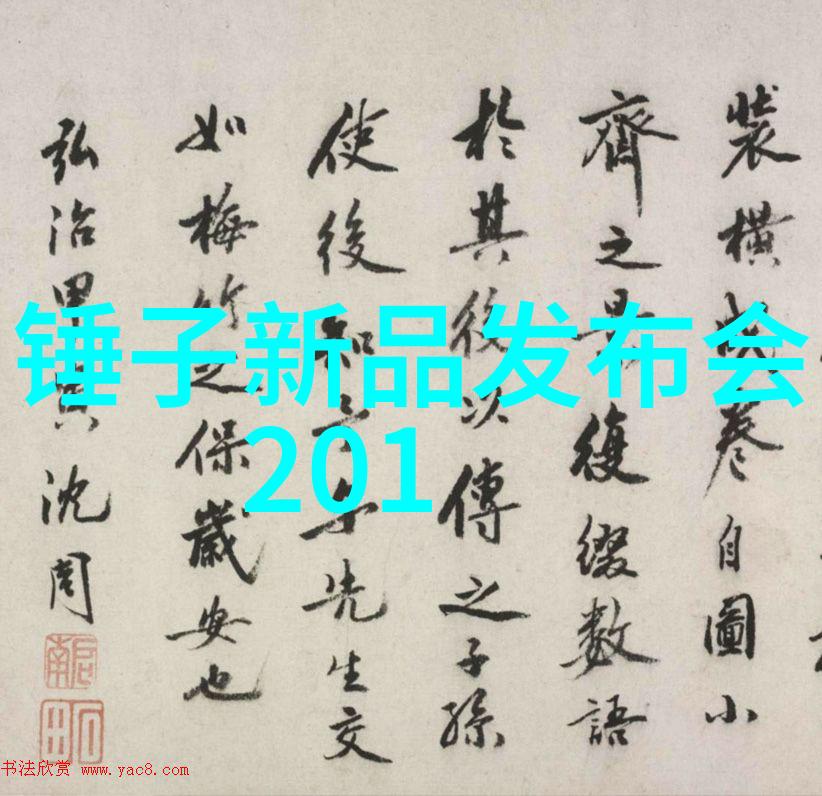 裝橫成卷自圖小
齊之復綴數語
於其後以傳之子孫
使後知先生交
如梅竹之保歲安也
弘治甲寅沈周
锤子新品发布会
201
书法欣赏 www.yac8.com